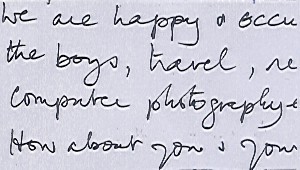 We are happy & occu
the boys, travel, re
Computer photography
How about you & your